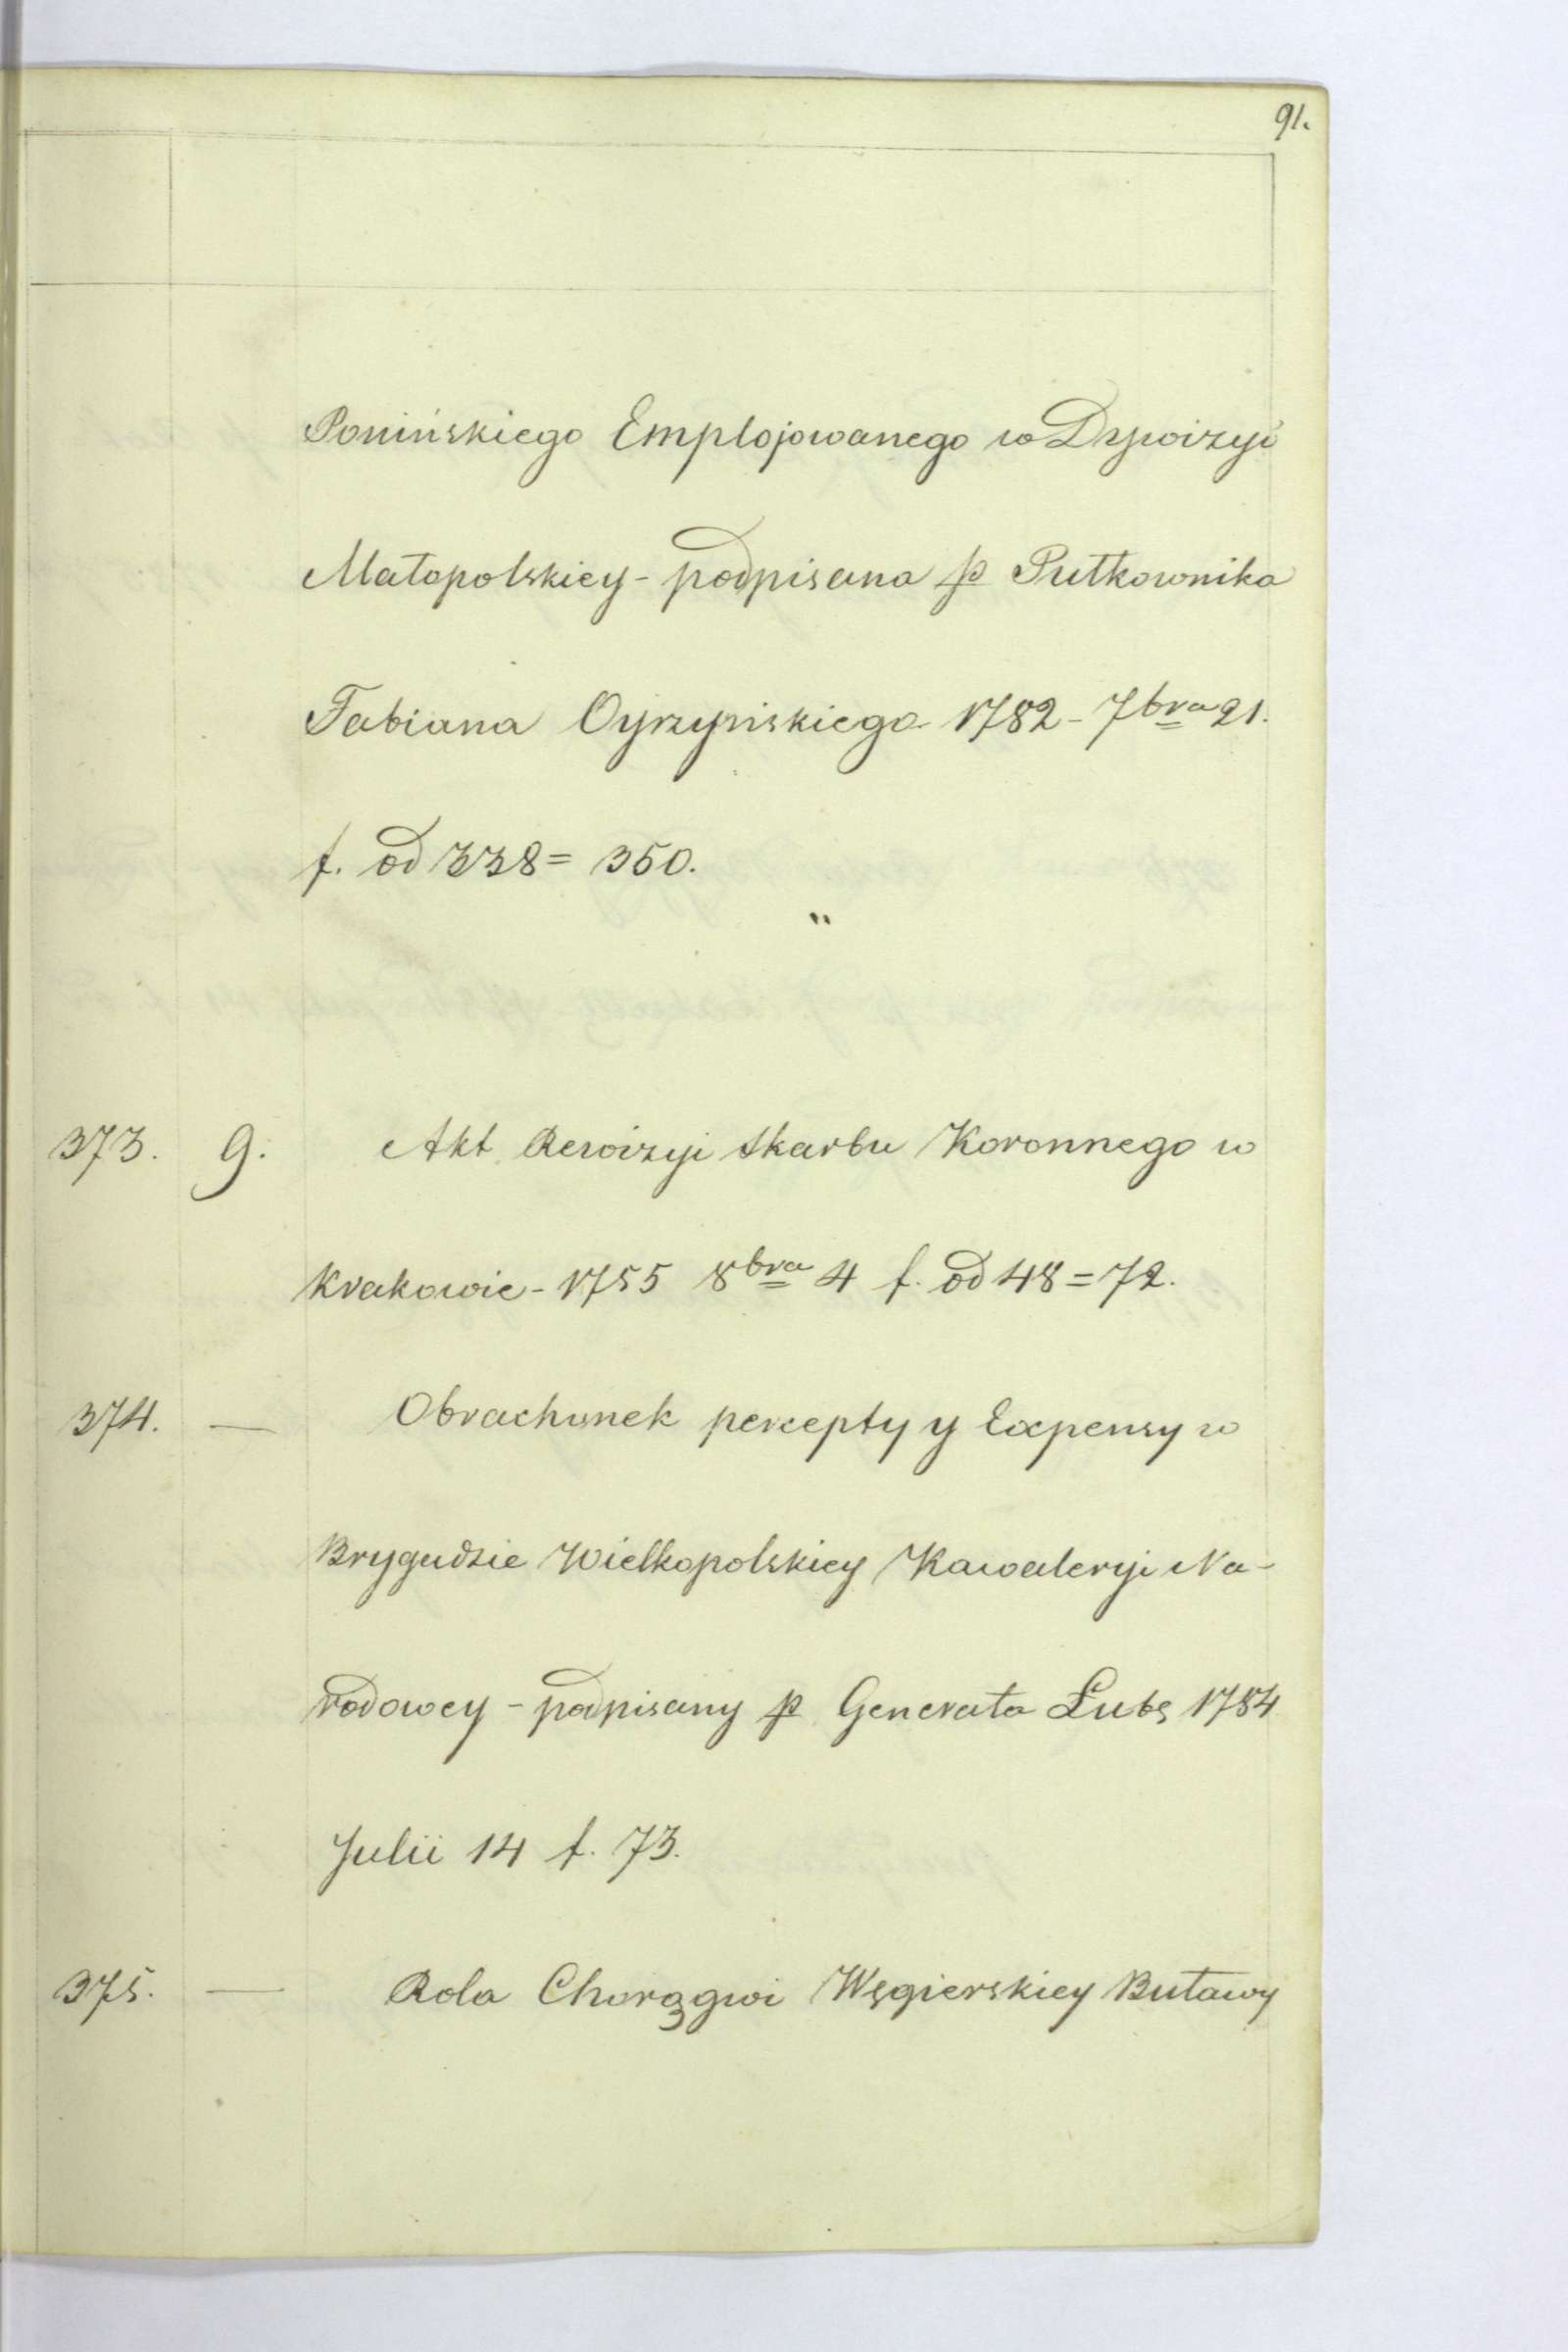 91.
Ponińskiego Emplojowanego w Dywizyi
Małopolskiey - podpisana p Pułkownika
Fabiana Oyrzyńskiego 1782 - 7bra 21.
f. od 338 = 350.
"
373. 9. Akt Rewizyi Skarbu Koronnego w
Krakowie - 1755 8bra 4 f. od 48 = 72.
374. — Obrachunek percepty y Expensy w
Brygadzie Wielkopolskiey Kawaleryi Na-
rodowey - podpisany p Generała Lubę 1784
Julii 14 f. 73.
375. — Rola Chorągwi Węgierskiey Buławy